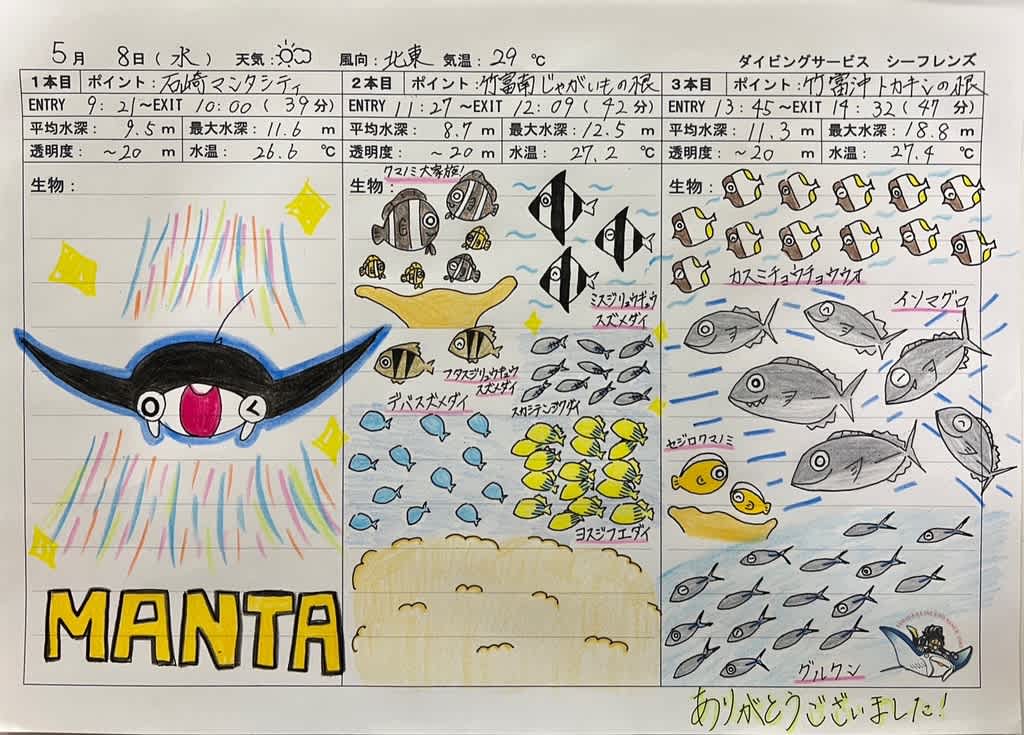 5月 8日(水) 天気: 風向:北東 気温:29℃ ダイビングサービス シーフレンズ
1本目 ポイント:石崎マンタシティ
ENTRY 9:21~EXIT 10:00(39分)
平均水深: 9.5m 最大水深:11.6m
透明度: ~20m 水温: 26.6℃
生物:
MANTA
2本目 ポイント:竹富南じゃがいもの根
ENTRY 11:27~EXIT 12:09(42分)
平均水深: 8.7m 最大水深:12.5m
透明度: ~20m 水温: 27.2℃
生物:
クマノミ大家族!
ミスジリュウキュウ
スズメダイ
フタスジリュウキュウ
スズメダイ
スカシテンジクダイ
デバスズメダイ
ヨスジフエダイ
3本目 ポイント:竹富沖トカキンの根
ENTRY 13:45~EXIT 14:32(47分)
平均水深: 11.3m 最大水深:18.8m
透明度: ~20m 水温: 27.4℃
生物:
カスミチョウチョウウオ
イソマグロ
セジロクマノミ
グルクン
ありがとうございました!